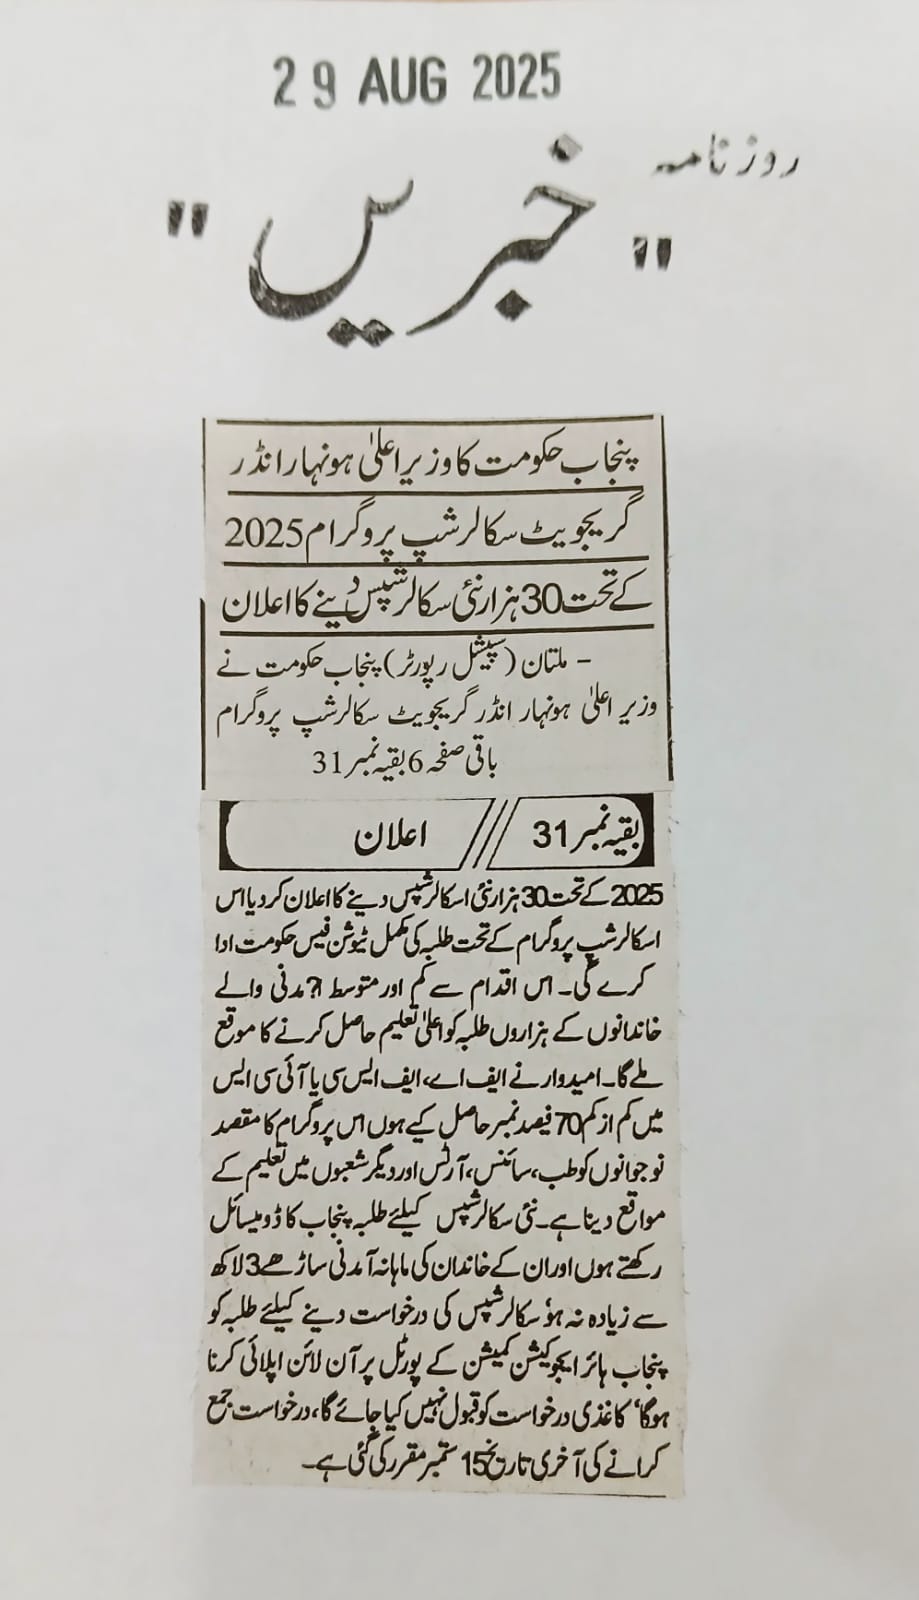 29 AUG 2025
روزنامہ
"خبریں"
پنجاب حکومت کا وزیراعلیٰ ہونہار انڈر
گریجویٹ سکالرشپ پروگرام 2025
کے تحت 30 ہزار نئی سکالرشپس دینے کا اعلان
- ملتان (سپیشل رپورٹر) پنجاب حکومت نے
وزیر اعلیٰ ہونہار انڈر گریجویٹ سکالرشپ پروگرام
باقی صفحہ 6 بقیہ نمبر 31
بقیہ نمبر 31 // اعلان
2025 کے تحت 30 ہزار نئی اسکالرشپس دینے کا اعلان کر دیا اس
اسکالرشپ پروگرام کے تحت طلبہ کی مکمل ٹیوشن فیس حکومت ادا
کرے گی۔ اس اقدام سے کم اور متوسط ا?مدنی والے
خاندانوں کے ہزاروں طلبہ کو اعلیٰ تعلیم حاصل کرنے کا موقع
ملے گا۔ امیدوار نے ایف اے، ایف ایس سی یا آئی سی ایس
میں کم از کم 70 فیصد نمبر حاصل کیے ہوں اس پروگرام کا مقصد
نوجوانوں کو طب، سائنس، آرٹس اور دیگر شعبوں میں تعلیم کے
مواقع دینا ہے۔ نئی سکالرشپس کیلئے طلبہ پنجاب کا ڈومیسائل
رکھتے ہوں اور ان کے خاندان کی ماہانہ آمدنی ساڑھے 3 لاکھ
سے زیادہ نہ ہو' سکالرشپس کی درخواست دینے کیلئے طلبہ کو
پنجاب ہائر ایجوکیشن کمیشن کے پورٹل پر آن لائن اپلائی کرنا
ہوگا' کاغذی درخواست کو قبول نہیں کیا جائے گا، درخواست جمع
کرانے کی آخری تاریخ 15 ستمبر مقرر کی گئی ہے۔